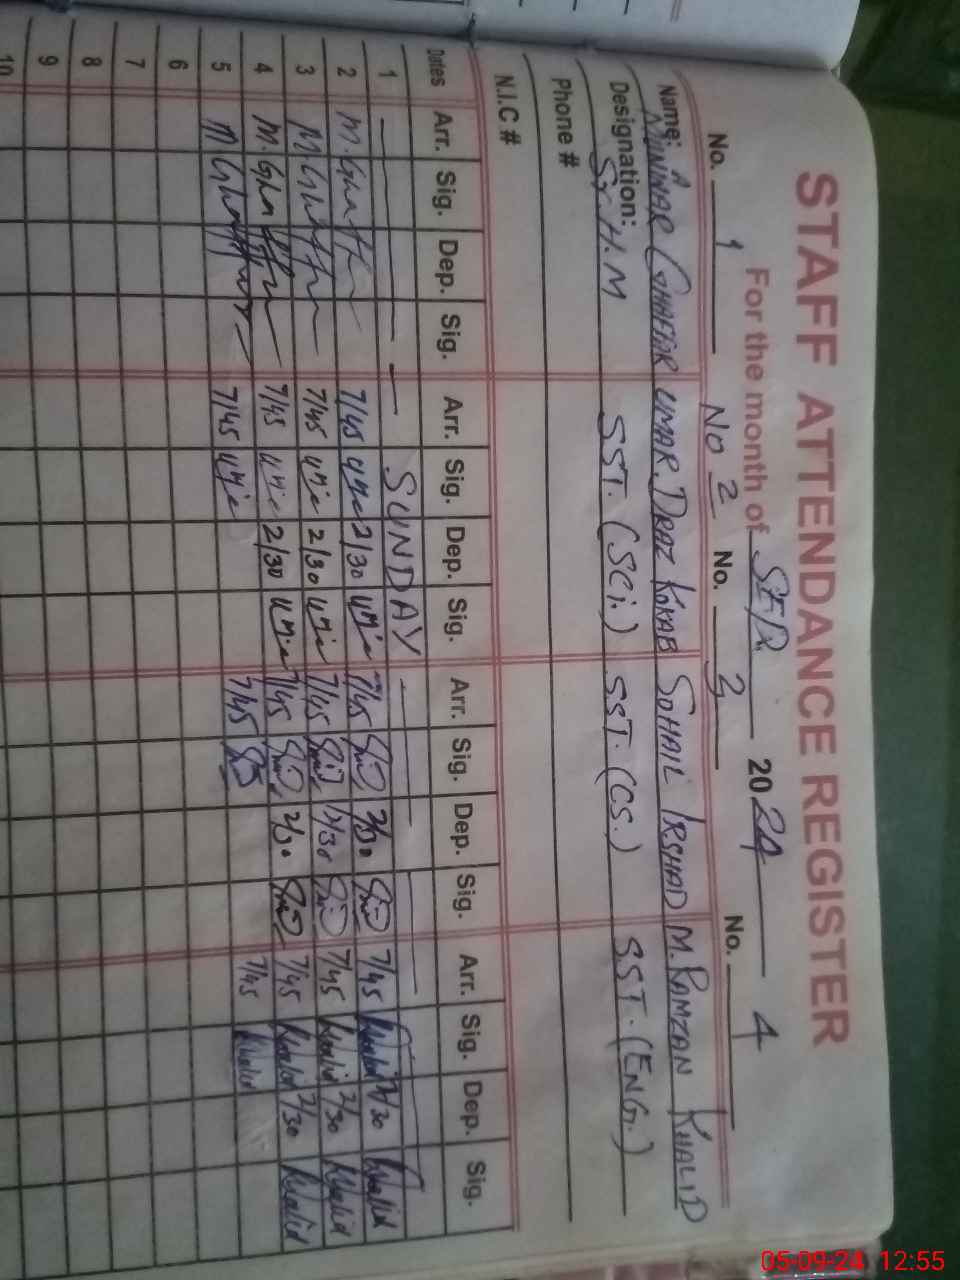 STAFF ATTENDANCE REGISTER
For the month of SEP. 2024
No. 1 No 2 No. 3 No. 4
Name: MUNWAR GHAFFAR UMAR DRAZ KOKAB SOHAIL IRSHAD M. RAMZAN KHALID
Designation: S.H.M SST. (SCi.) S.S.T. (CS.) S.S.T. (ENG.)
Phone #
N.I.C #
Dates Arr. Sig. Dep. Sig. Arr. Sig. Dep. Sig. Arr. Sig. Dep. Sig. Arr. Sig. Dep. Sig.
1 SUNDAY
2 7/45 2/30 7/45 2/30 7/45 Khalid 2/30 Khalid
3 7/45 2/30 7/45 2/30 7/45 Khalid 2/30 Khalid
4 7/45 2/30 7/45 2/30 7/45 Khalid 2/30 Khalid
5 7/45 7/45 7/45 Khalid
6
7
8
9
10
05-09-24 12:55